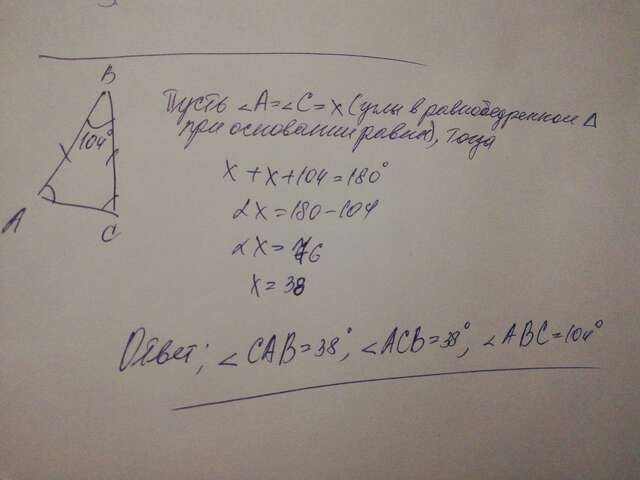 B
104°
A
C
Пусть ∠A=∠C=x (углы в равнобедренном Δ
при основании равны), тогда
x+x+104=180°
2x=180-104
2x=76
x=38
Ответ; ∠CAB=38°, ∠ACB=38°, ∠ABC=104°